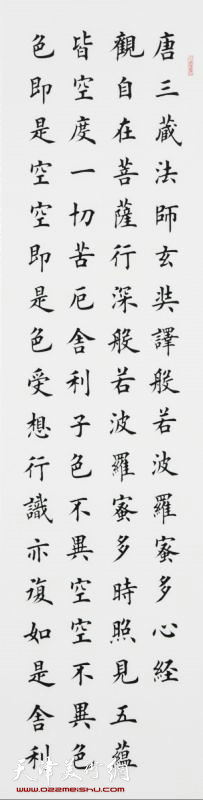 唐三藏法師玄奘譯般若波羅蜜多心経
觀自在菩薩行深般若波羅蜜多時照見五蘊
皆空度一切苦厄舍利子色不異空空不異色
色即是空空即是色受想行識亦復如是舍利
天津美术網
www.022meishu.com